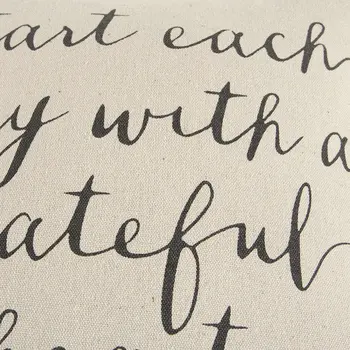 tart each
y with a
ateful
heart